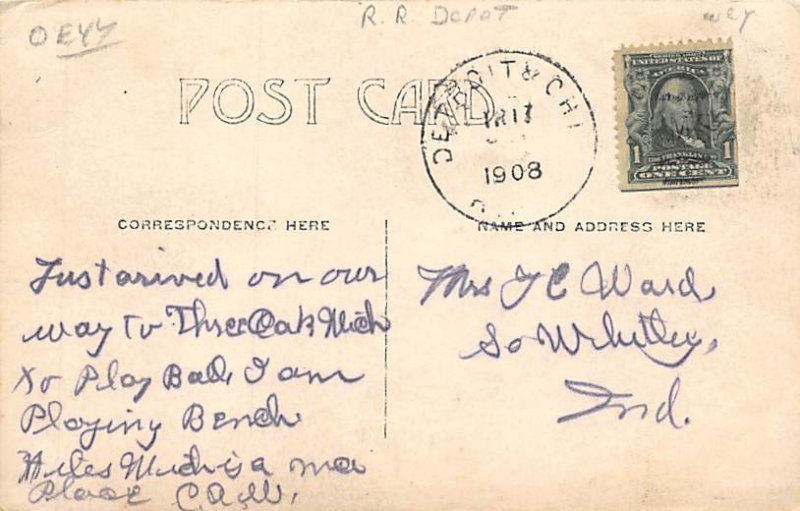 R.R. DEPOT
OEYY
POST CARD
DETROIT & CHI
1908
SERIES 1902
UNITED STATES OF
AMERICA
1 FRANKLIN 1
POSTAGE
ONE CENT
CORRESPONDENCE HERE
NAME AND ADDRESS HERE
Just arived on our
way to Three Oak Mich
to Play Ball, I am
Playing Bench
Niles Mich is a
Place C.A.W.
Mrs J C Ward,
So Whitley,
Ind.